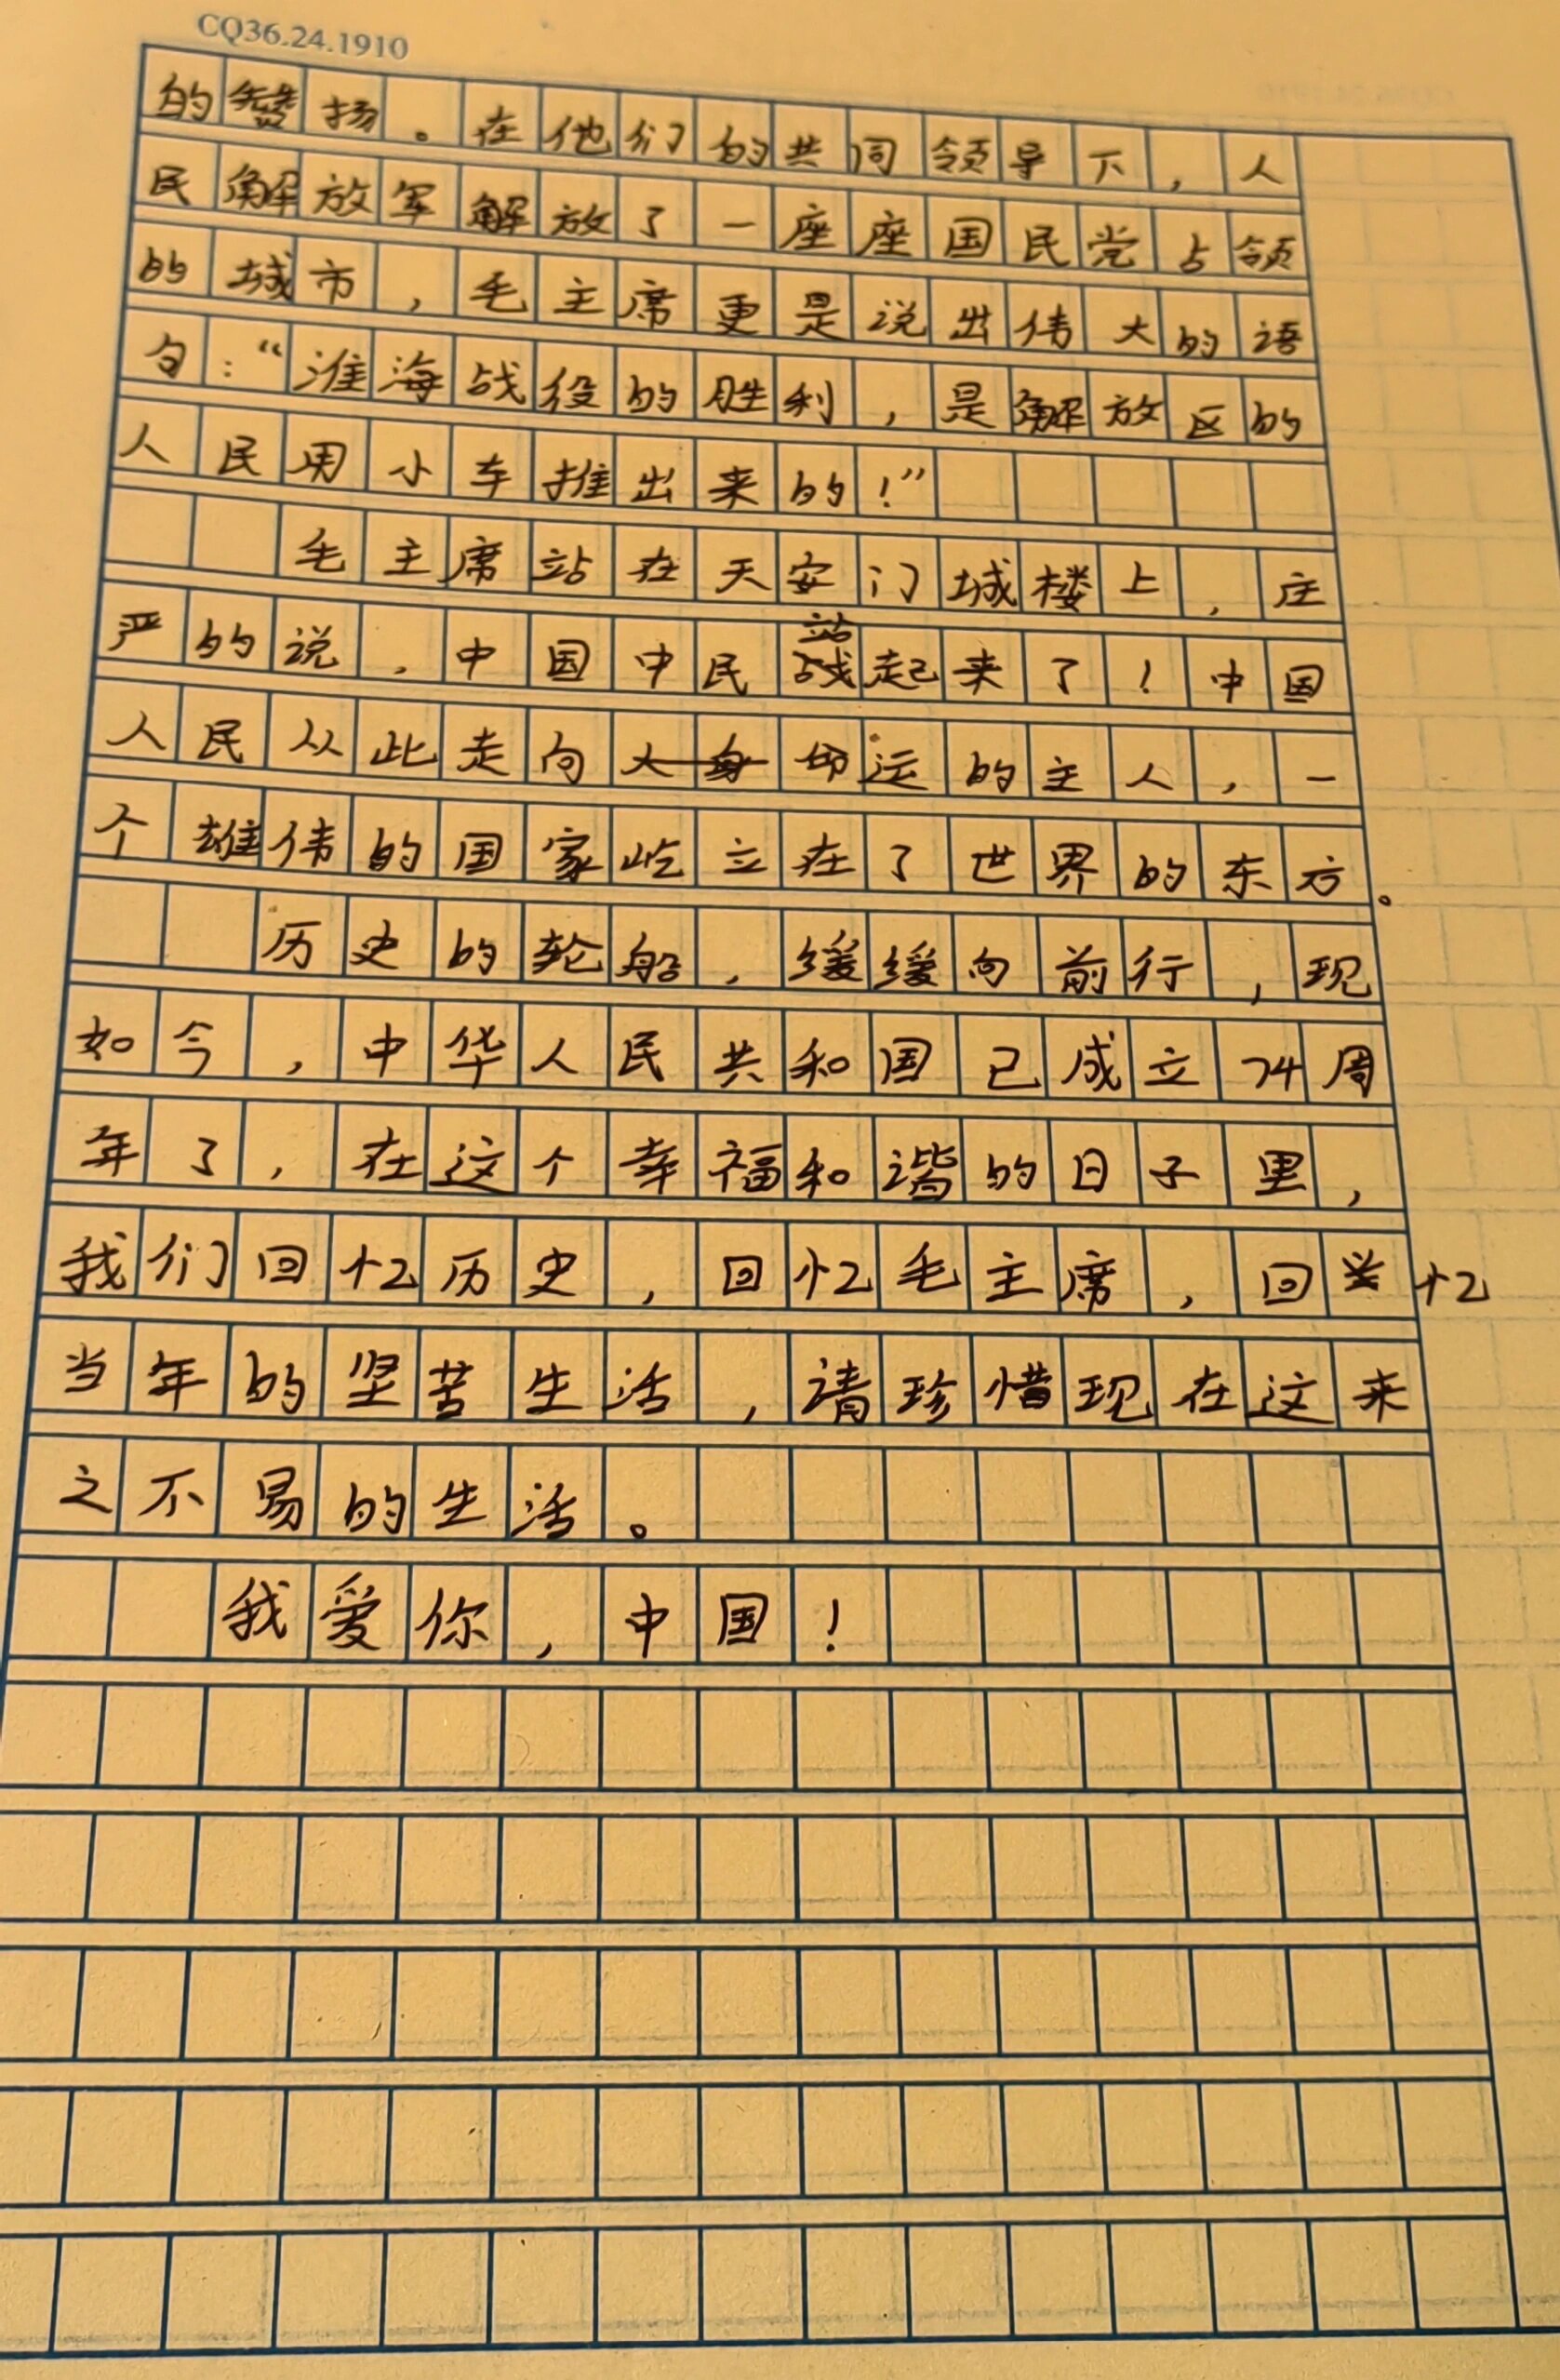 CQ36.24.1910
的赞扬。在他们的共同领导下，人
民解放军解放了一座座国民党占领
的城市，毛主席更是说出伟大的语
句：“淮海战役的胜利，是解放区的
人民用小车推出来的！”
毛主席站在天安门城楼上，庄
严的说，中国中民站起来了！中国
人民从此走向运的主人，一
个雄伟的国家屹立在了世界的东方。
历史的轮船，缓缓向前行，现
如今，中华人民共和国已成立74周
年了，在这个幸福和谐的日子里，
我们回忆历史，回忆毛主席，回忆
当年的坚苦生活，请珍惜现在这来
之不易的生活。
我爱你，中国！